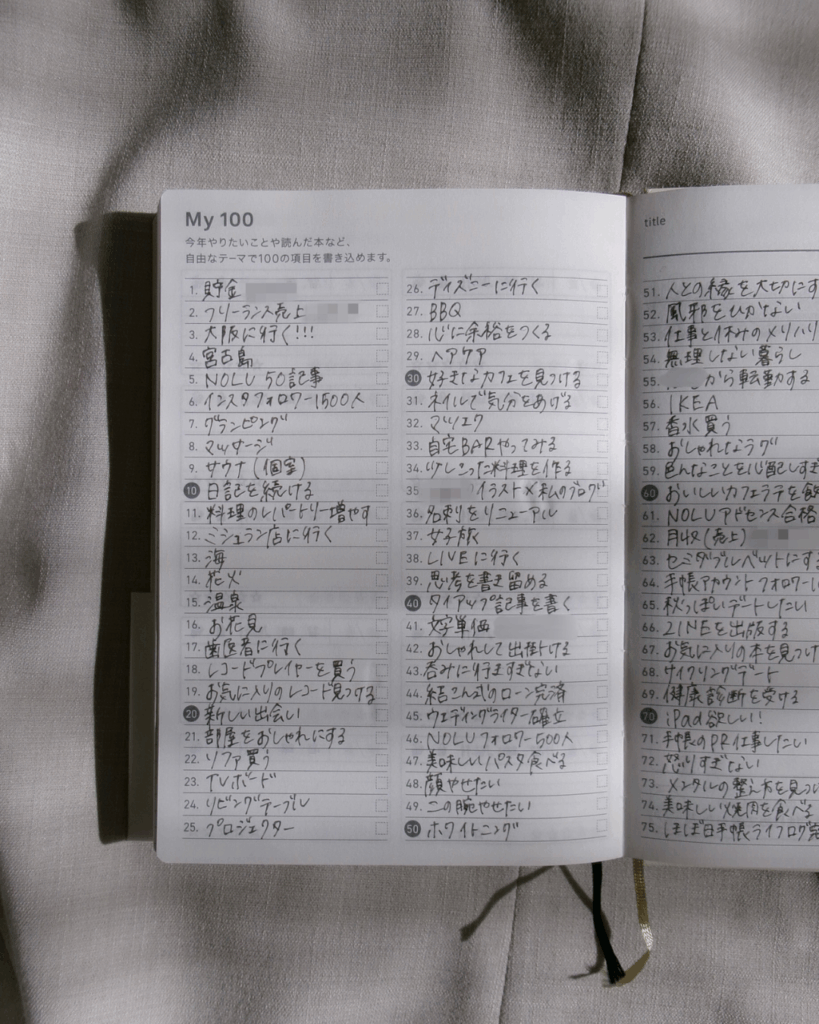 My 100
今年やりたいことや読んだ本など、
自由なテーマで100の項目を書き込めます。
1. 貯金
2. フリーランス売上
3. 大阪に行く!!!
4. 宮古島
5. NOLU 50記事
6. インスタフォロワー1500人
7. グランピング
8. マッサージ
9. サウナ(個室)
10 日記を続ける
11. 料理のレパートリー増やす
12. ミシュラン店に行く
13. 海
14. 花火
15. 温泉
16. お花見
17. 歯医者に行く
18. レコードプレイヤーを買う
19. お気に入りのレコード見つける
20 新しい出会い
21. 部屋をおしゃれにする
22. ソファ買う
23. TVボード
24. リビングテーブル
25. プロジェクター
26. ディズニーに行く
27. BBQ
28. 心に余裕をつくる
29. ヘアケア
30 好きなカフェを見つける
31. ネイルで気分をあげる
32. マツエク
33. 自宅BARやってみる
34. ツレこった料理を作る
35 イラスト×私のブログ
36. 名刺をリニューアル
37. 女子旅
38. LIVEに行く
39. 思考を書き留める
40 タイアップ記事を書く
41. 文字単価
42. おしゃれして出掛ける
43. 呑みに行きすぎない
44. 結こん式のローン完済
45. ウェディングライター確立
46. NOLUフォロワー500人
47. 美味しいパスタ食べる
48. 顔やせたい
49. 二の腕やせたい
50 ホワイトニング
title
51. 人との縁を大切にす
52. 風邪をひかない
53. 仕事と休みのメリハリ
54. 無理しない暮らし
55. から転勤する
56. IKEA
57. 香水買う
58. おしゃれなラグ
59. 色んなことを心配しすぎ
60 おいしいカフェラテを飲
61. NOLUアドセンス合格
62. 月収(売上)
63. セミダブルベットにす
64. 手帳アカウントフォロワー1
65. 秋っぽいデートしたい
66. ZINEを出版する
67. お気に入りの本を見つけ
68. サイクリングデート
69. 健康診断を受ける
70 iPad欲しい!
71. 手帳のPR仕事したい
72. 怒りすぎない
73. メンタルの整え方を見つ
74. 美味しい焼肉を食べる
75. ほぼ日手帳ライフログ完